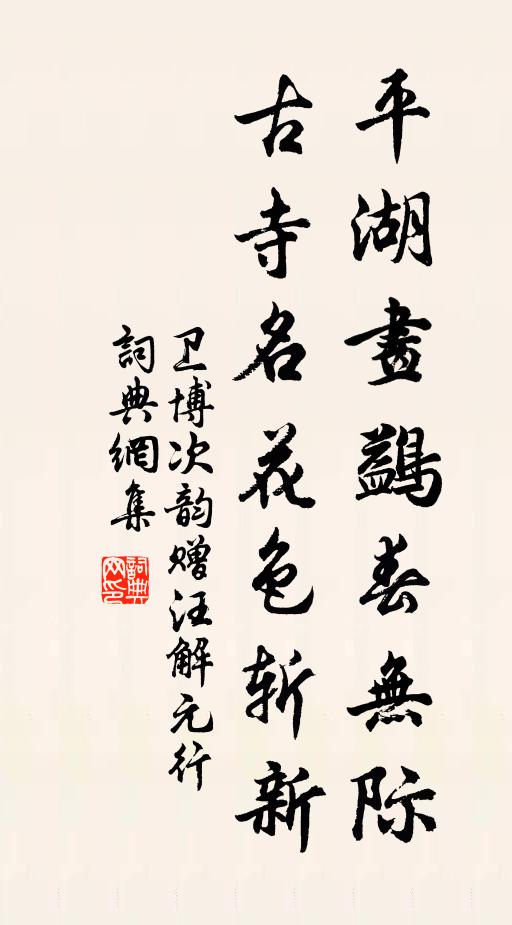 平湖畫鷁春無际
古寺名花色斩新
卫博次韵赠汪解元行
詞典網集
詞典网印